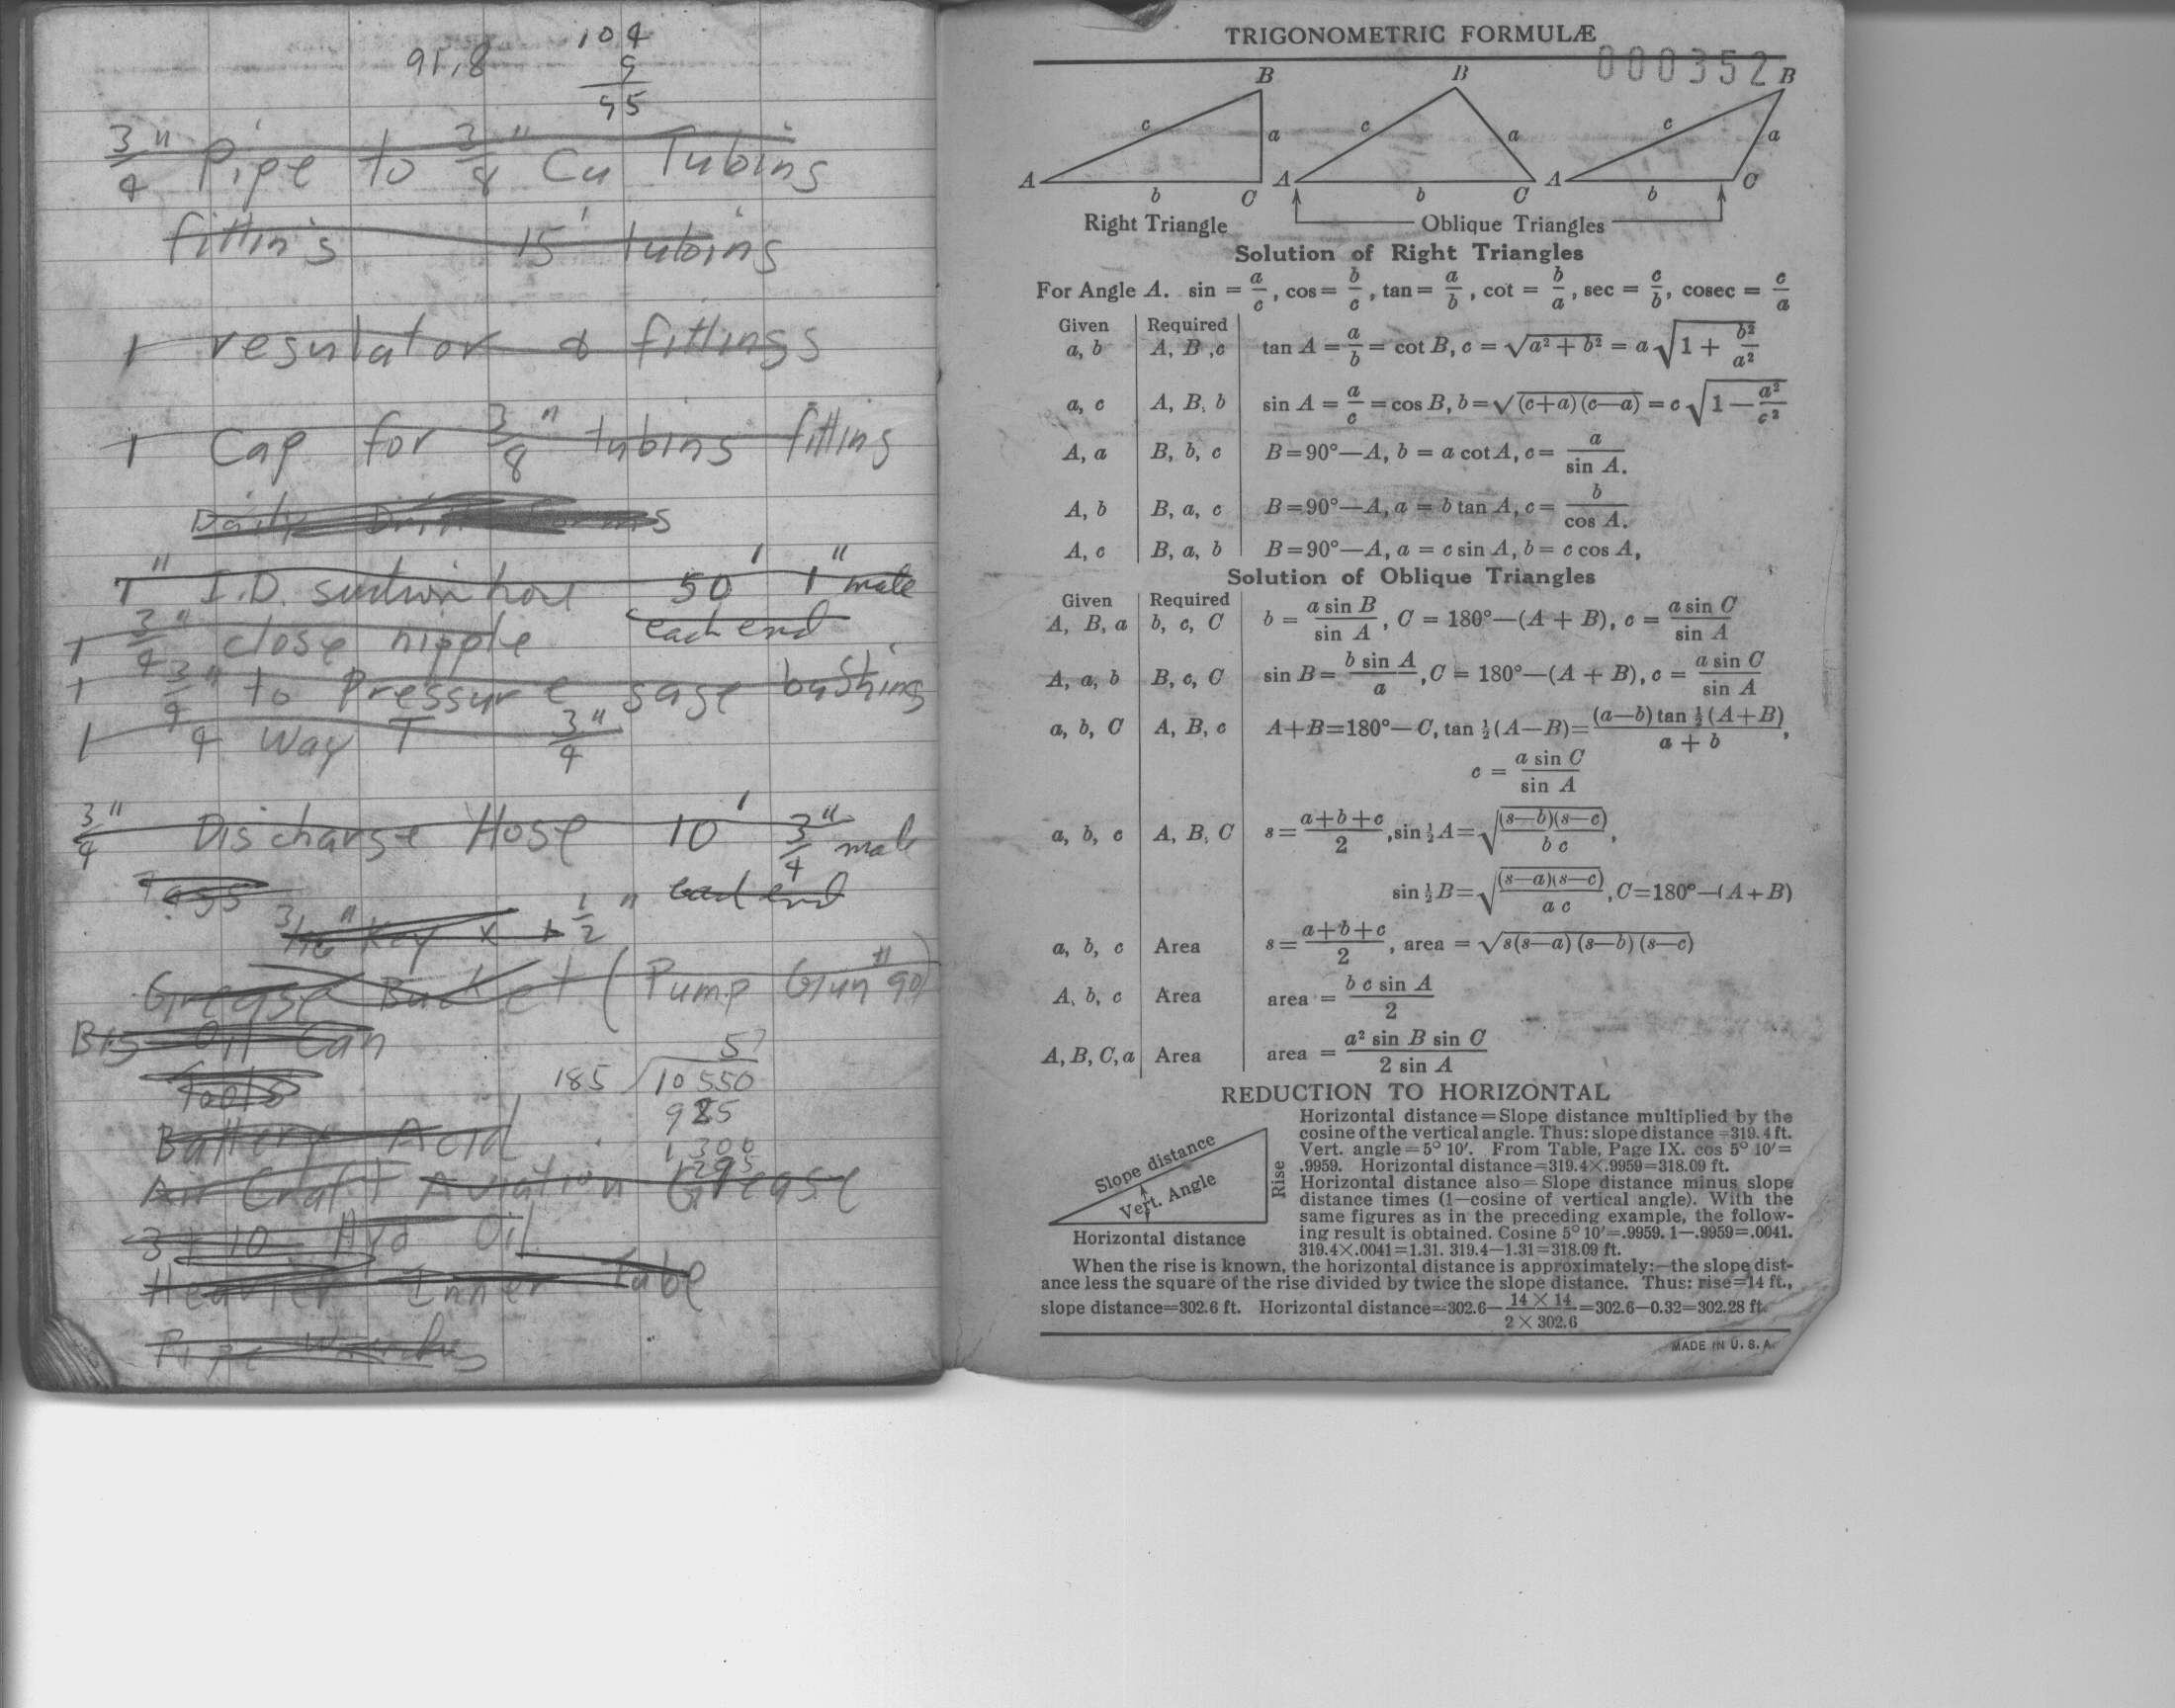 104
91.8 9
95
3/4" Pipe to 3/8" Cu Tubing
fittin's 15' tubing
1 regulator & fittings
1 Cap for 3/8" tubing fitting
Daily Drill forms
1" I.D. suction hose 50' 1" male
each end
1 3/4" close nipple
1 3/4" to Pressure gage bushing
1 4 Way T 3/4"
3/4" Discharge Hose 10' 3/4" male
each end
3/16" Key x 1 1/2"
Grease Bucket (Pump Gun #90)
Big Oil Can
57
185 10550
Tools
925
Battery Acid
1300
1295
Air Craft Aviation Grease
3 + 10 Hyd Oil
Heavier Inner Tube
Pipe Wrenches
TRIGONOMETRIC FORMULÆ
000352
B B B
c a c a c a
A b C A b C A b C
Right Triangle Oblique Triangles
Solution of Right Triangles
For Angle A. sin = a/c, cos = b/c, tan = a/b, cot = b/a, sec = c/b, cosec = c/a
Given Required
a, b A, B, c tan A = a/b = cot B, c = √(a² + b²) = a √(1 + b²/a²)
a, c A, B, b sin A = a/c = cos B, b = √((c+a)(c—a)) = c √(1 — a²/c²)
A, a B, b, c B=90°—A, b = a cot A, c = a/sin A.
A, b B, a, c B=90°—A, a = b tan A, c = b/cos A.
A, c B, a, b B=90°—A, a = c sin A, b = c cos A,
Solution of Oblique Triangles
Given Required
A, B, a b, c, C b = a sin B/sin A, C = 180°—(A + B), c = a sin C/sin A
A, a, b B, c, C sin B = b sin A/a, C = 180°—(A + B), c = a sin C/sin A
a, b, C A, B, c A+B=180°—C, tan ½(A—B) = (a—b) tan ½(A+B)/(a + b),
c = a sin C/sin A
a, b, c A, B, C s = (a+b+c)/2, sin ½A = √((s—b)(s—c)/bc),
sin ½B = √((s—a)(s—c)/ac), C=180°—(A+B)
a, b, c Area s = (a+b+c)/2, area = √(s(s—a)(s—b)(s—c))
A, b, c Area area = b c sin A/2
A, B, C, a Area area = a² sin B sin C/2 sin A
REDUCTION TO HORIZONTAL
Slope distance
Vert. Angle
Rise
Horizontal distance
Horizontal distance=Slope distance multiplied by the
cosine of the vertical angle. Thus: slope distance =319.4 ft.
Vert. angle=5° 10′. From Table, Page IX. cos 5° 10′=
.9959. Horizontal distance=319.4×.9959=318.09 ft.
Horizontal distance also=Slope distance minus slope
distance times (1—cosine of vertical angle). With the
same figures as in the preceding example, the follow-
ing result is obtained. Cosine 5° 10′=.9959. 1—.9959=.0041.
319.4×.0041=1.31. 319.4—1.31=318.09 ft.
When the rise is known, the horizontal distance is approximately:—the slope dist-
ance less the square of the rise divided by twice the slope distance. Thus: rise=14 ft.,
slope distance=302.6 ft. Horizontal distance=302.6— 14 × 14/2 × 302.6 =302.6—0.32=302.28 ft.
MADE IN U. S. A.